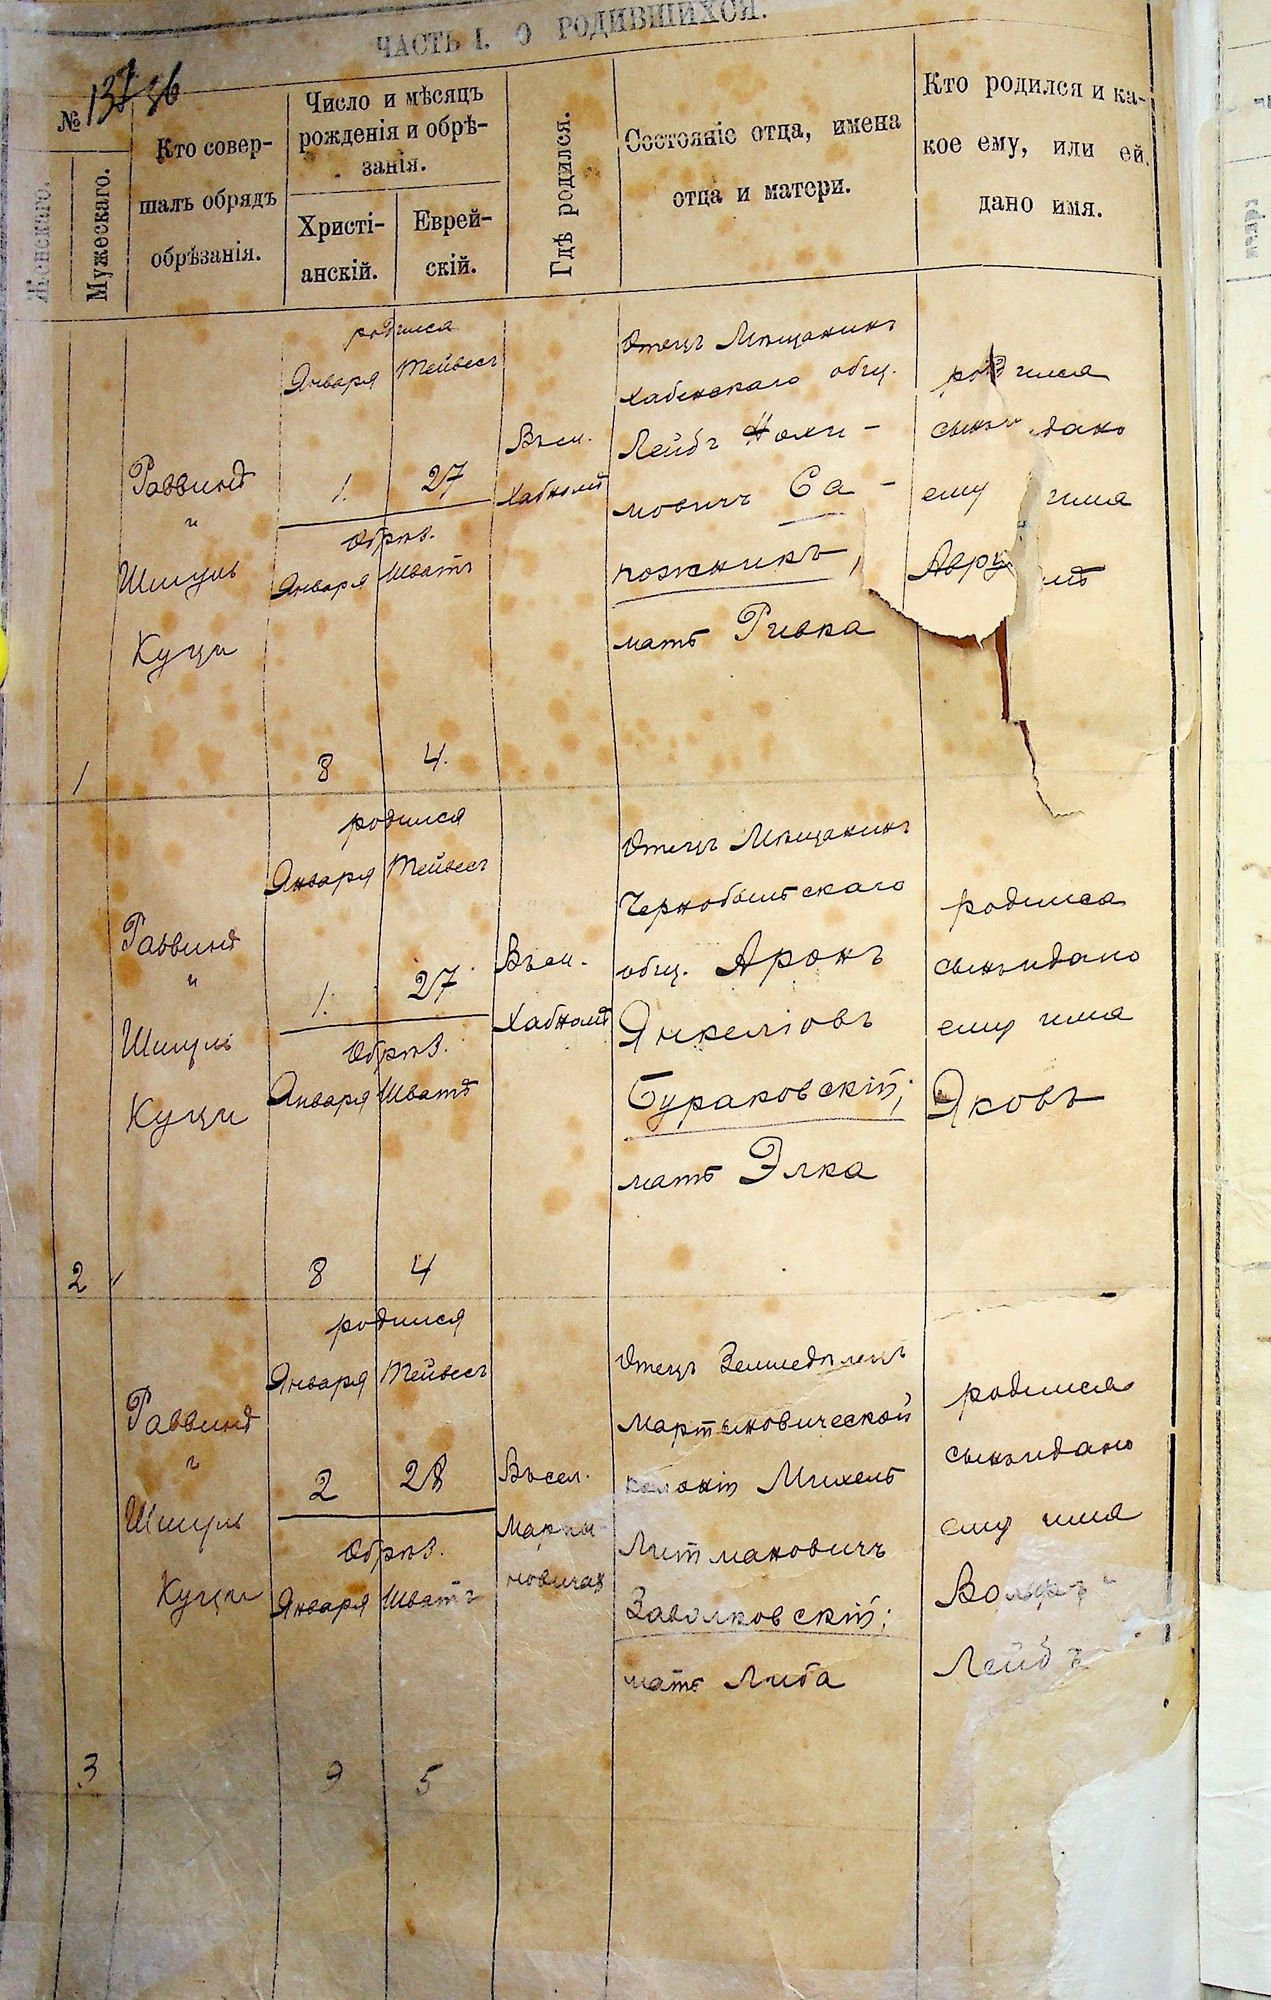 ЧАСТЬ I. О РОДИВШИХСЯ.
№
Женскаго.
Мужескаго.
Кто совер-
шалъ обрядъ
обрѣзанія.
Число и мѣсяцъ
рожденія и обрѣ-
занія.
Христі-
анскій.
Еврей-
скій.
Гдѣ родился.
Состояніе отца, имена
отца и матери.
Кто родился и ка-
кое ему, или ей,
дано имя.
1
Раввинъ
и
Шмуль
Куци
родился
Января Тейвесъ
1. 27
Обрѣз.
Января Шватъ
8 4.
Въ м.
Хабномъ
Отецъ Мѣщанинъ
Хабенскаго общ.
Лейбъ Нохи-
мовичъ Са-
пожникъ,
мать Ривка
родился
сынъ дано
ему имя
2
Раввинъ
и
Шмуль
Куци
родился
Января Тейвесъ
1. 27
Обрѣз.
Января Шватъ
8 4
Въ м.
Хабномъ
Отецъ Мѣщанинъ
Чернобыльскаго
общ. Аронъ
Янкеліовъ
Бураковскій;
мать Элка
родился
сынъ и дано
ему имя
Яковъ
3
Раввинъ
и
Шмуль
Куци
родился
Января Тейвесъ
2 28
Обрѣз.
Января Шватъ
9 5
Въ сел.
Марты-
новичах
Отецъ Земледѣлецъ
Мартыновической
колоніи Михель
Литмановичъ
Заволковскій;
мать Либа
родился
сынъ и дано
ему имя
Вольфъ-
Лейбъ